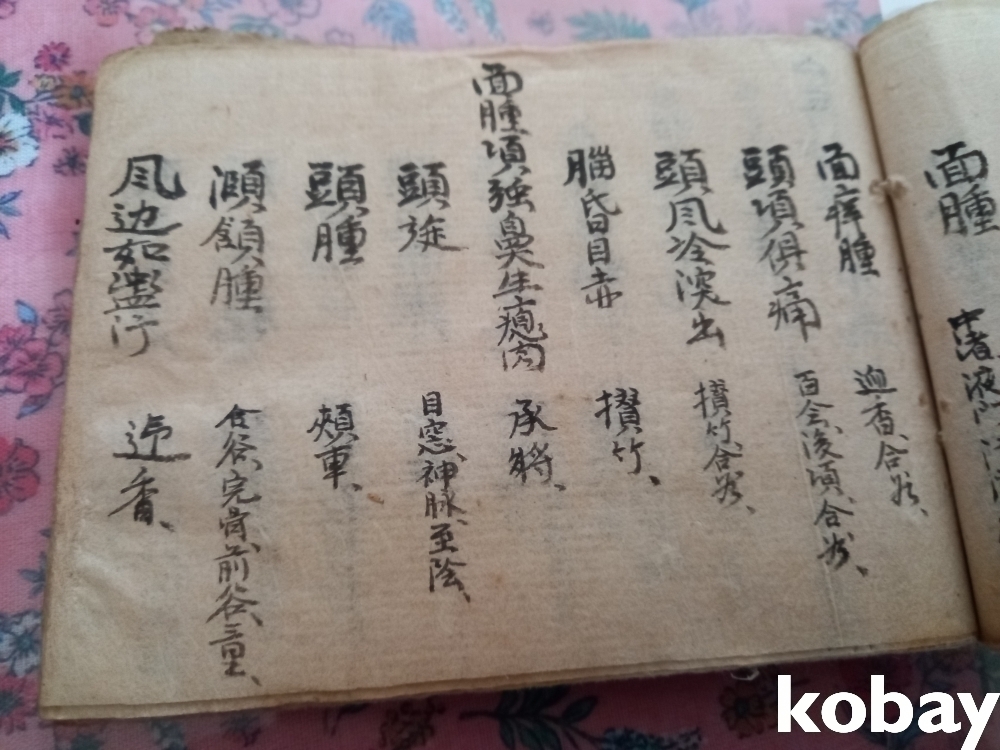 面腫
中渚 液門
面痒腫
迎香、合谷、
頭項俱痛
百会、後頂、合谷、
頭風冷淚出
攅竹、合谷、
腦昏目赤
攅竹、
面腫項强鼻生瘜肉
承將、
頭旋
目窓、神脉、至陰、
頭腫
頰車、
頷腫
合谷、完骨、前谷、三里、
風边如行
迎香、
kobay